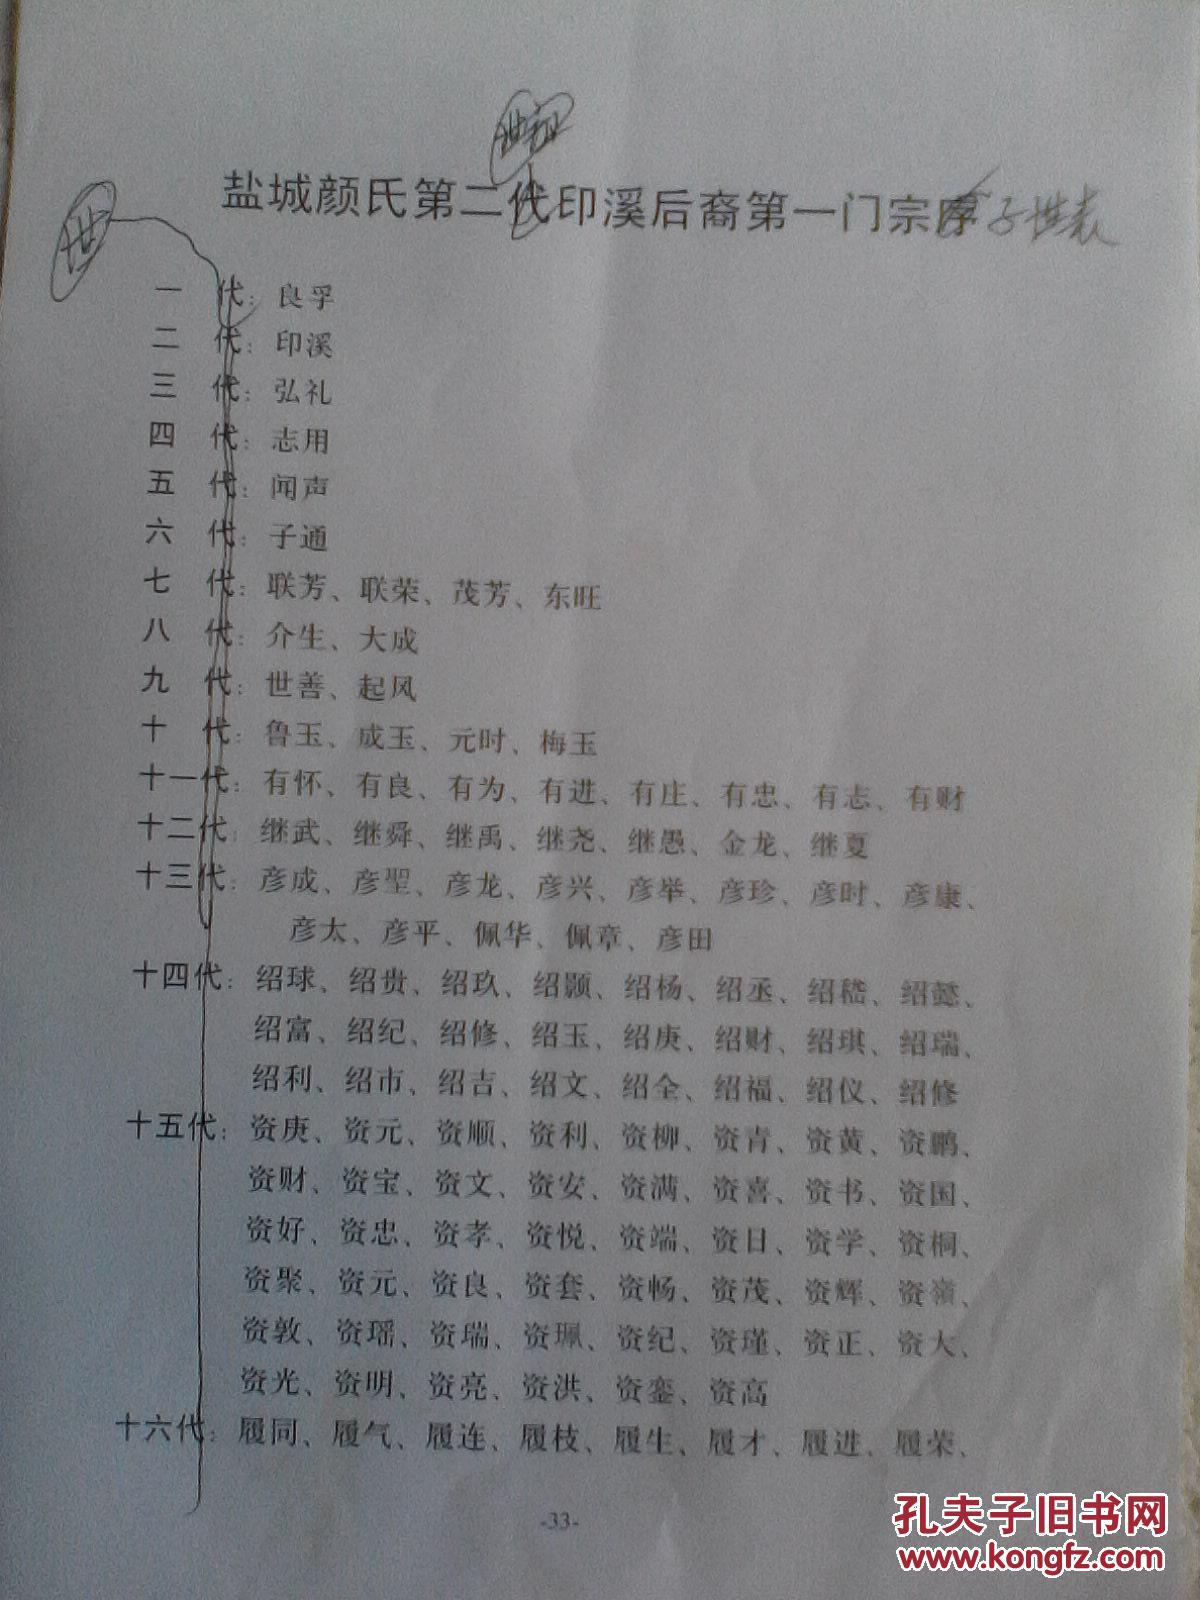 世祖
盐城颜氏第二代印溪后裔第一门宗序 子世表
世
一代：良孚
二代：印溪
三代：弘礼
四代：志用
五代：闻声
六代：子通
七代：联芳、联荣、茂芳、东旺
八代：介生、大成
九代：世善、起风
十代：鲁玉、成玉、元时、梅玉
十一代：有怀、有良、有为、有进、有庄、有忠、有志、有财
十二代：继武、继舜、继禹、继尧、继愚、金龙、继夏
十三代：彦成、彦聖、彦龙、彦兴、彦举、彦珍、彦时、彦康、
彦太、彦平、佩华、佩章、彦田
十四代：绍球、绍贵、绍玖、绍颢、绍杨、绍丞、绍嵇、绍懿、
绍富、绍纪、绍修、绍玉、绍庚、绍财、绍琪、绍瑞、
绍利、绍市、绍吉、绍文、绍全、绍福、绍仪、绍修
十五代：资庚、资元、资顺、资利、资柳、资青、资黄、资鹏、
资财、资宝、资文、资安、资满、资喜、资书、资国、
资好、资忠、资孝、资悦、资端、资日、资学、资桐、
资聚、资元、资良、资套、资畅、资茂、资辉、资嶺、
资敦、资瑶、资瑞、资珮、资纪、资瑾、资正、资大、
资光、资明、资亮、资洪、资銮、资高
十六代：履同、履气、履连、履枝、履生、履才、履进、履荣、
-33-
孔夫子旧书网
www.kongfz.com